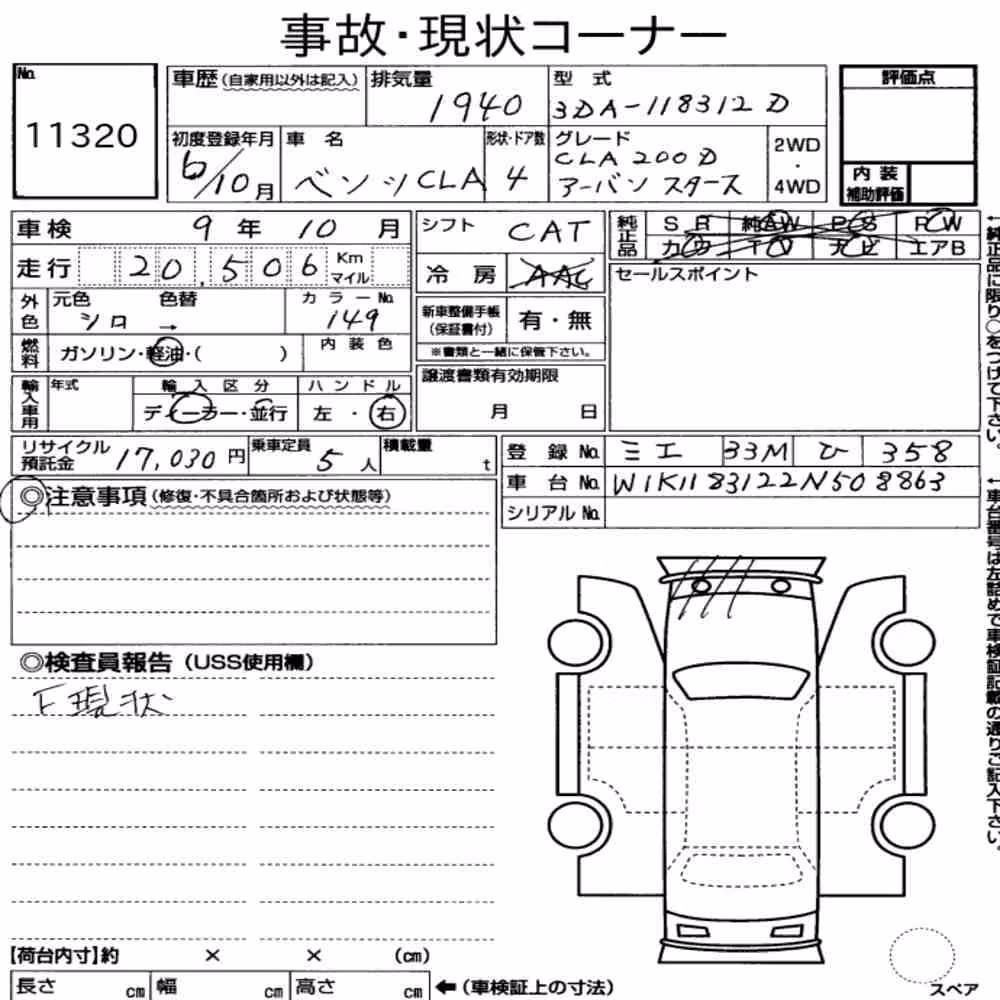 事故・現状コーナー
No.
11320
車歴(自家用以外は記入) 排気量 1940 型式 3DA-118312D
初度登録年月 6/10月 車名 ベンツCLA 形状・ドア数 4 グレード CLA 200D アーバン スターズ 2WD・4WD
評価点
内装補助評価
車検 9年10月
走行 20,506 Km マイル
外色 元色 シロ 色替 → カラーNo. 149
燃料 ガソリン・軽油・( ) 内装色
輸入車用 年式 輸入区分 ディーラー・並行 ハンドル 左・右
シフト CAT
冷房 AAC
新車整備手帳(保証書付) 有・無
※書類と一緒に保管下さい。
譲渡書類有効期限
月 日
純正品 SR 純AW PS PW
カワ TV ナビ エアB
セールスポイント
リサイクル預託金 17,030円 乗車定員 5人 積載量 t
登録No. ミエ 33M ひ 358
車台No. W1K1183122N508863
シリアルNo.
◎注意事項(修復・不具合箇所および状態等)
◎検査員報告(USS使用欄)
F現状
【荷台内寸】約 × × (cm)
長さ cm 幅 cm 高さ cm ←(車検証上の寸法)
スペア
←純正品に限り○をつけて下さい。
←車台番号は左詰めで車検証記載の通りご記入下さい。